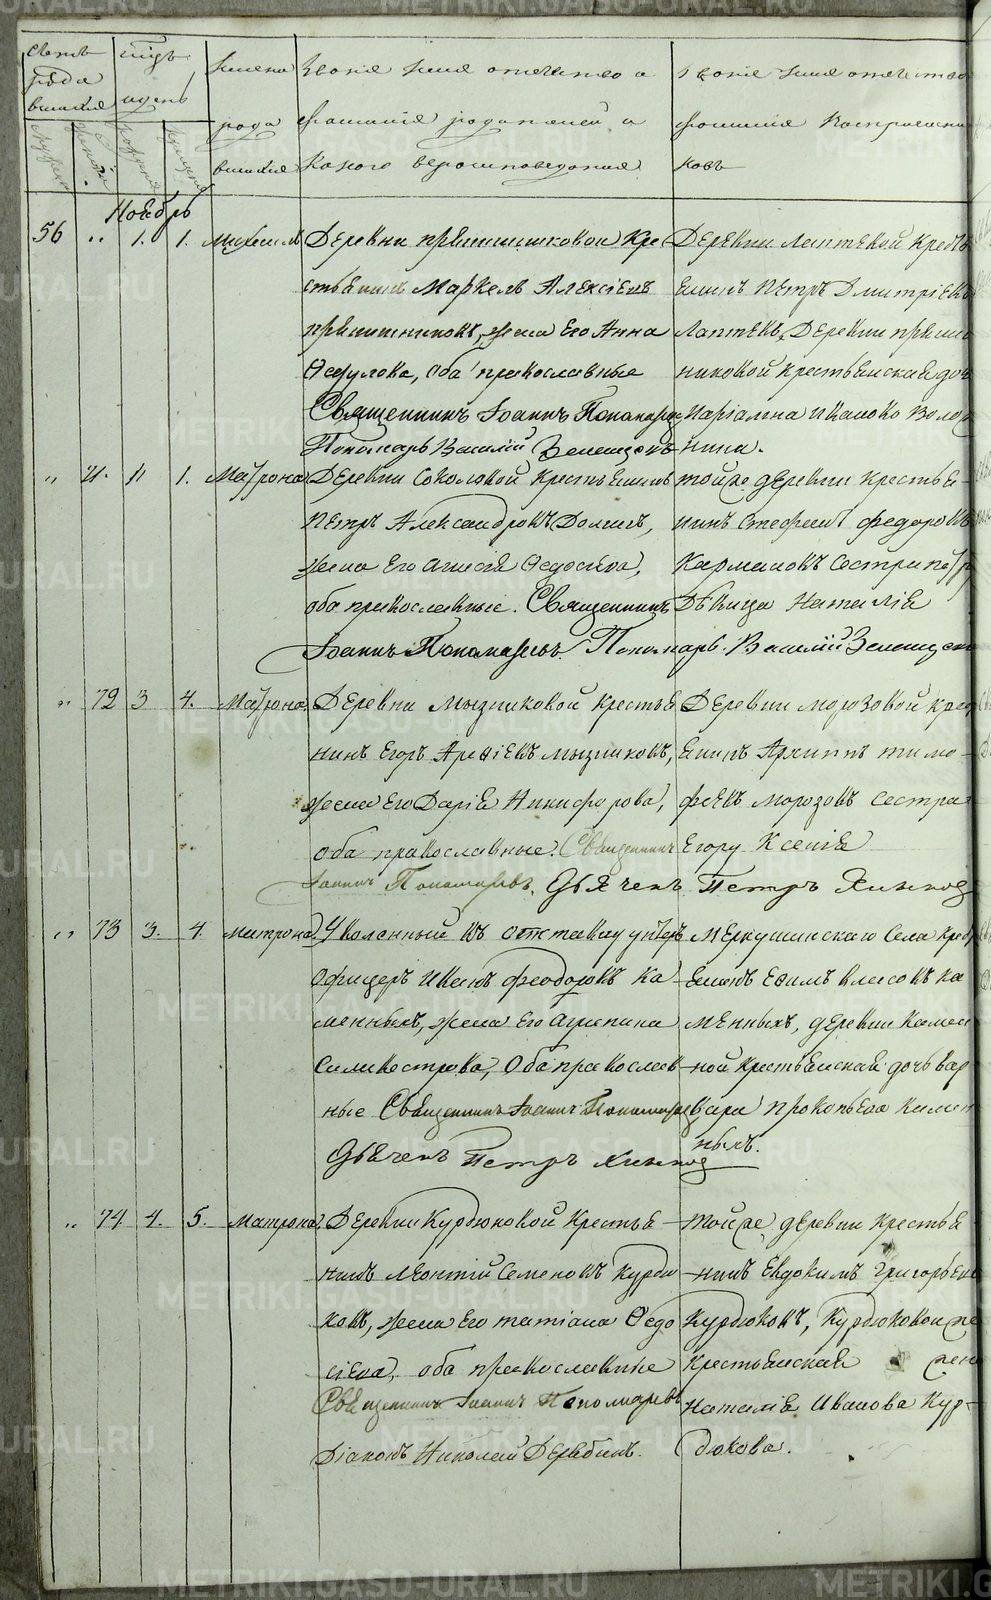 Счетъ родившихся
Мѣсяцъ и день
Имена родившихся
Званіе имя отчество и фамилія родителей и какого вѣроисповѣданія
Званіе имя отчество фамилія воспріемниковъ
Мужеска
Женска
рожденія
крещенія
Ноябрь
56 " 1. 1. Михаилъ
Деревни
Кре-
стьянинъ Маркелъ Алексіевъ
жена его Анна
оба православные
Священникъ Іоаннъ Пономаревъ
Пономарь Василій Зеленцовъ
Деревни Лаптевой Кресть
янинъ Петръ Дмитріевъ
Лаптевъ, Деревни
никовой крестьянская доч
Маріамна Иванова Воло
нина.
" 71. 1. 1. Матрона
Деревни Соколовой Крестьянинъ
Петръ Александровъ
жена его Федосѣева,
оба православные. Священникъ
Іоаннъ Пономаревъ. Пономарь Василій Зеленцовъ
тойже деревни крестья-
нинъ Стефанъ Федоровъ
сестра
Дѣвица Наталія
" 72 3 4. Матрона
Деревни Мызниковой крестья
нинъ Егоръ Мызниковъ,
жена его Дарія Никифорова,
оба православные. Священникъ
Іоаннъ Пономаревъ. Дьячекъ Петръ
Деревни Морозовой крес
янинъ Архиппъ Тимо-
феевъ Морозовъ сестра
Егору Ксенія
" 73 3. 4. Матрона
Уволенный въ отставку унтеръ
офицеръ Иванъ Феодоровъ Ка-
менныхъ, жена его Агрипина
Силивестрова, оба православ-
ные Священникъ Іоаннъ Пономаревъ
Дьячекъ Петръ
Меркушинскаго Села крес
янинъ Власовъ Ка
менныхъ, деревни Камен
ной крестьянская дочь Вар
вара Прокопьева Камен
ныхъ.
" 74 4. 5. Матрона
Деревни Курдюковой крестья-
нинъ Леонтій Семеновъ Курдю
ковъ, жена его Татіана Федо
сіева, оба православные
Священникъ Іоаннъ Пономаревъ
Діаконъ Николай Дерябинъ.
тойже деревни крестья-
нинъ Евдокимъ Григорьевъ
Курдюковъ, Курдюковой же
крестьянская жен
Наталія Иванова Кур-
дюкова.
METRIKI.GASO-URAL.RU